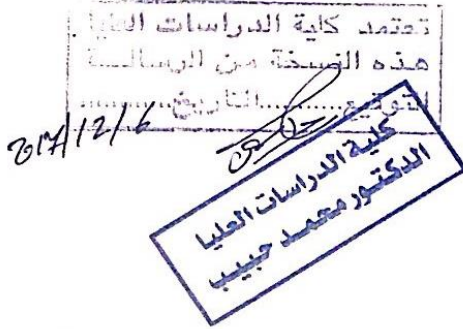 تعتمد كلية الدراسات العليا
هذه النسخة من الرسالــة
التوقيع............التاريخ............
2017/12/6
كلية الدراسات العليا
الدكتور محمد حبيب